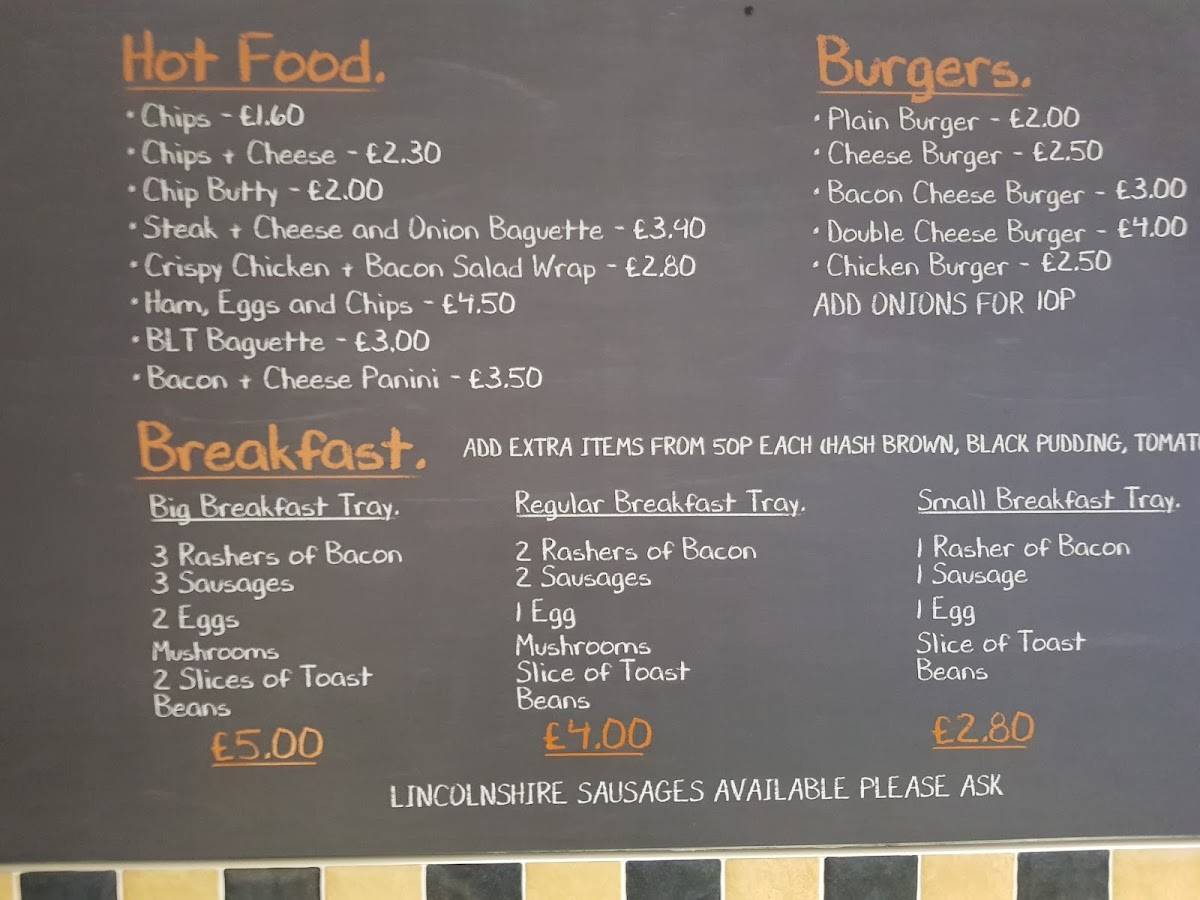 Hot Food.
• Chips - £1.60
• Chips + Cheese - £2.30
• Chip Butty - £2.00
• Steak + Cheese and Onion Baguette - £3.40
• Crispy Chicken + Bacon Salad Wrap - £2.80
• Ham, Eggs and Chips - £4.50
• BLT Baguette - £3.00
• Bacon + Cheese Panini - £3.50
Burgers.
• Plain Burger - £2.00
• Cheese Burger - £2.50
• Bacon Cheese Burger - £3.00
• Double Cheese Burger - £4.00
• Chicken Burger - £2.50
ADD ONIONS FOR 10P
Breakfast.
ADD EXTRA ITEMS FROM 50P EACH (HASH BROWN, BLACK PUDDING,
Big Breakfast Tray.
3 Rashers of Bacon
3 Sausages
2 Eggs
Mushrooms
2 Slices of Toast
Beans
£5.00
Regular Breakfast Tray.
2 Rashers of Bacon
2 Sausages
1 Egg
Mushrooms
Slice of Toast
Beans
£4.00
Small Breakfast Tray.
1 Rasher of Bacon
1 Sausage
1 Egg
Slice of Toast
Beans
£2.80
LINCOLNSHIRE SAUSAGES AVAILABLE PLEASE ASK